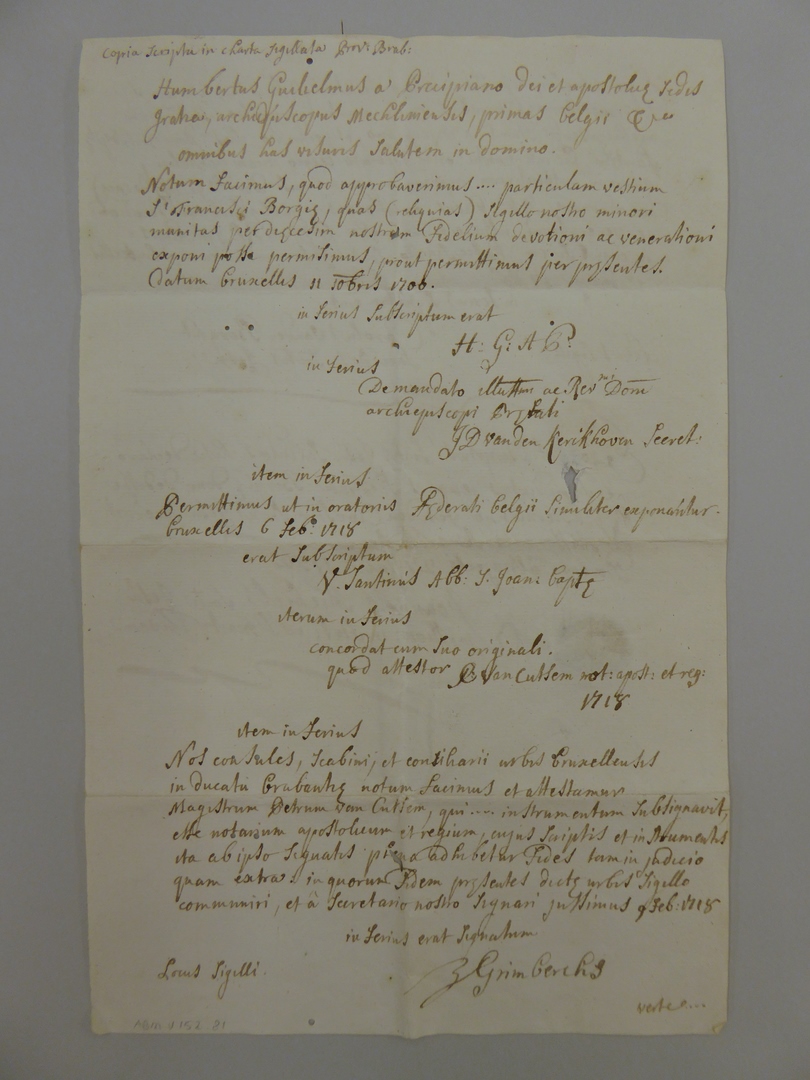 Copia scripta in charta sigillata Prov: Brab:
Humbertus Guilielmus a Precipiano dei et apostolicę sedis
gratia, archiepiscopus Mechliniensis, primas belgii &ca
omnibus has visuris salutem in domino.
Notum facimus, quod approbaverimus .... particulam vestium
Sti Francisci Borgię, quas (reliquias) sigillo nostro minori
munitas per dięcesim nostram fidelium devotioni ac venerationi
exponi posse permisimus, prout permittimus per pręsentes.
datum bruxellis 11 10bris 1706.
inferius subscriptum erat
H: G: A
inferius
De mandato illustmi ac Revmi Domi
archiepiscopi
JD vanden Kerikhoven Secret:
item inferius
Permittimus ut in oratoriis fęderati belgii similiter exponantur.
bruxellis 6 febr 1718
erat subscriptum
V. Santinus Abb: S. Joan: baptę
iterum inferius
concordat cum suo originali.
quod attestor P Van Cutsem not: apost: et reg:
1718
item inferius
Nos consules, scabini, et consiliarii urbis bruxellensis
in ducatu brabantię notum facimus et attestamur
Magistrum Petrum van Cutsem, qui .... instrumentum subsignavit,
esse notarium apostolicum et regium, cujus scriptis et instrumentis
ita ab ipso signatis plena adhibetur fides tam in judicio
quam extra: in quorum fidem pręsentes dictę urbis sigillo
communiri, et à secretario nostro signari jussimus 9 feb: 1718
inferius erat signatum
Grimberchs
Locus sigilli.
verte....